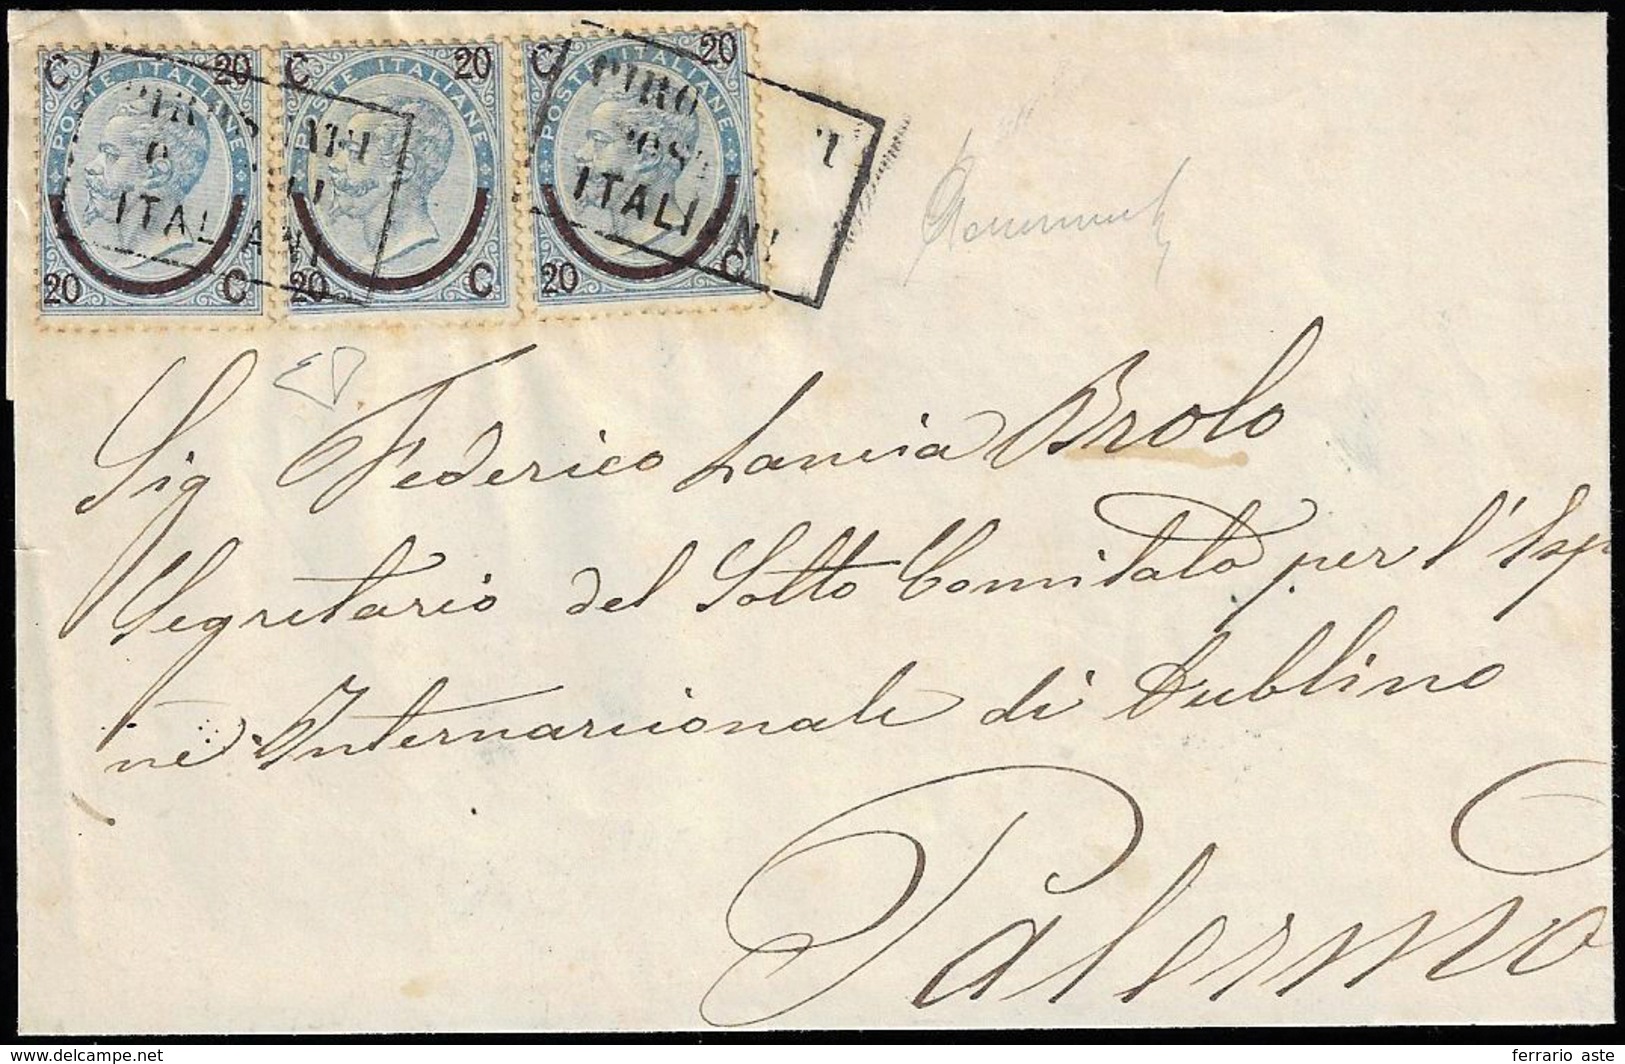 C 20 C 20 C 20
POSTE ITALIANE POSTE ITALIANE POSTE ITALIANE
PIRO
ITALIANI ITALIANI
20 C 20 C 20 C
Sig Federico Lancia Brolo
Segretario del Sotto Comitato per l'Esp
ne Internazionale di Dublino
Palermo
delcampe.net
ferrario aste